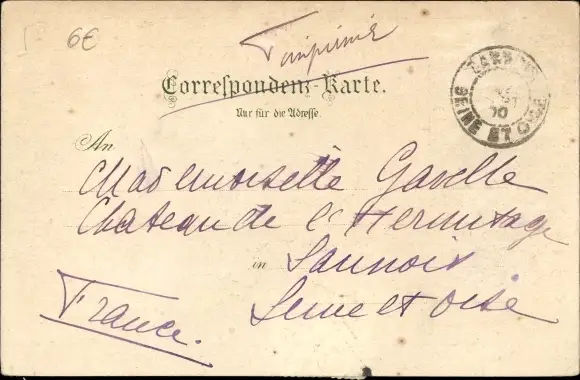 6€
Imprimé
Correspondenz-Karte.
Nur für die Adresse.
An
Mademoiselle Gavelle
Chateau de l'Hermitage
in Sannois
Seine et Oise
France.
SEINE ET OISE